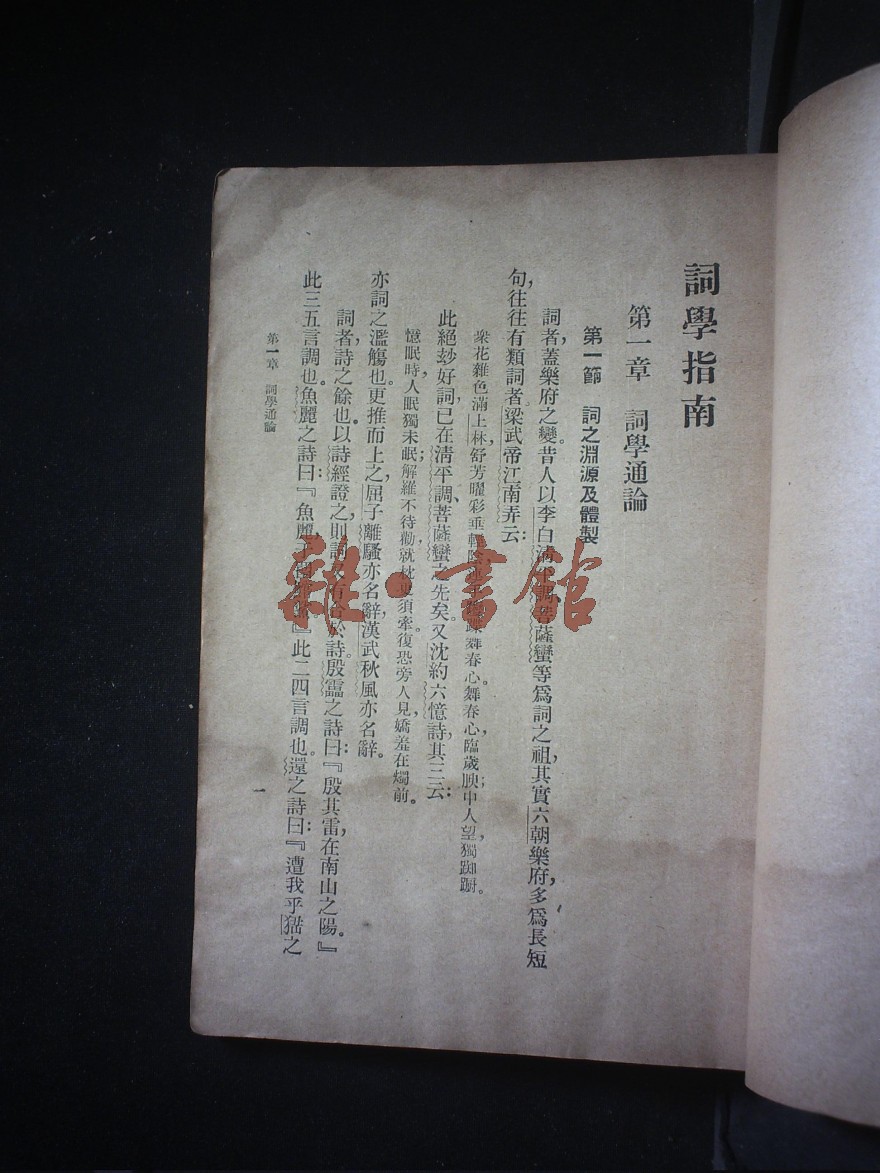 詞學指南
第一章 詞學通論
第一節 詞之淵源及體製
詞者,蓋樂府之變。昔人以李白清平調、菩薩蠻等爲詞之祖,其實六朝樂府,多爲長短
句,往往有類詞者。梁武帝江南弄云:
衆花雜色滿上林,舒芳曜彩垂輕陰,躞舞春心。舞春心,臨歲腴;中人望,獨踟躕。
此絕玅好詞,已在清平調、菩薩蠻之先矣。又沈約六憶詩,其三云:
憶眠時,人眠獨未眠;解羅不待勸,就枕更須牽。復恐旁人見,嬌羞在燭前。
亦詞之濫觴也。更推而上之,屈子離騷亦名辭,漢武秋風亦名辭。
詞者,詩之餘也。以詩經證之,則詞又有合於詩。殷靁之詩曰:『殷其雷,在南山之陽。』
此三五言調也。魚麗之詩曰:『魚麗于』此二四言調也。還之詩曰:『遭我乎猺之
第一章 詞學通論
一
雜·書館